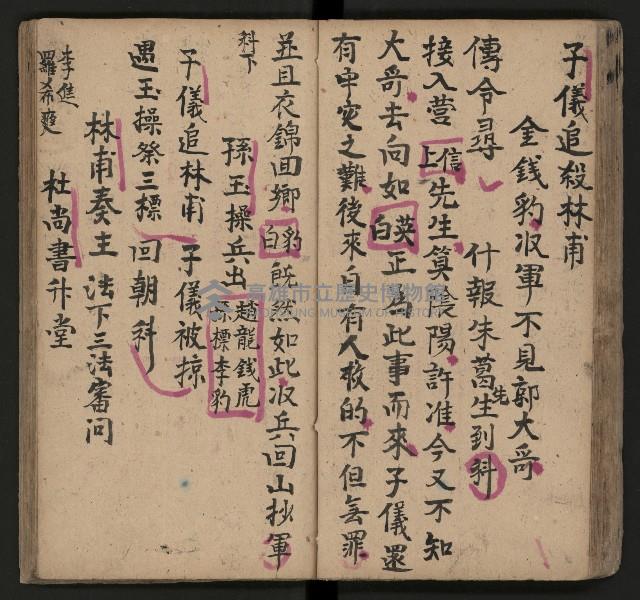 子儀追殺林甫
金錢豹収軍不見郭大哥
傳令尋 什報朱葛先生到 科
接入营 信上 先生算陰陽許准今又不知
大哥去向如 英白 正為此事而來子儀還
有牢灾之難後來自有人救的不但無罪
並且衣錦回鄉 豹白 既然如此収兵回山抄軍
科下
孫玉操兵出 趙龍錢虎 孫標李豹
子儀追林甫 子儀被掠
遇玉操祭三標 回朝 科
林甫奏主 法下三法審问
李進
羅希奭
杜尚書升堂
高雄市立歷史博物館
KAOHSIUNG MUSEUM OF HISTORY